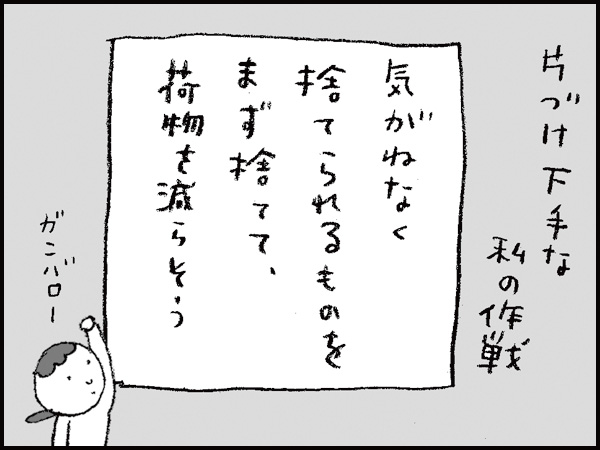 片づけ下手な
私の作戦
気がねなく
捨てられるものを
まず捨てて、
荷物を減らそう
ガンバロー